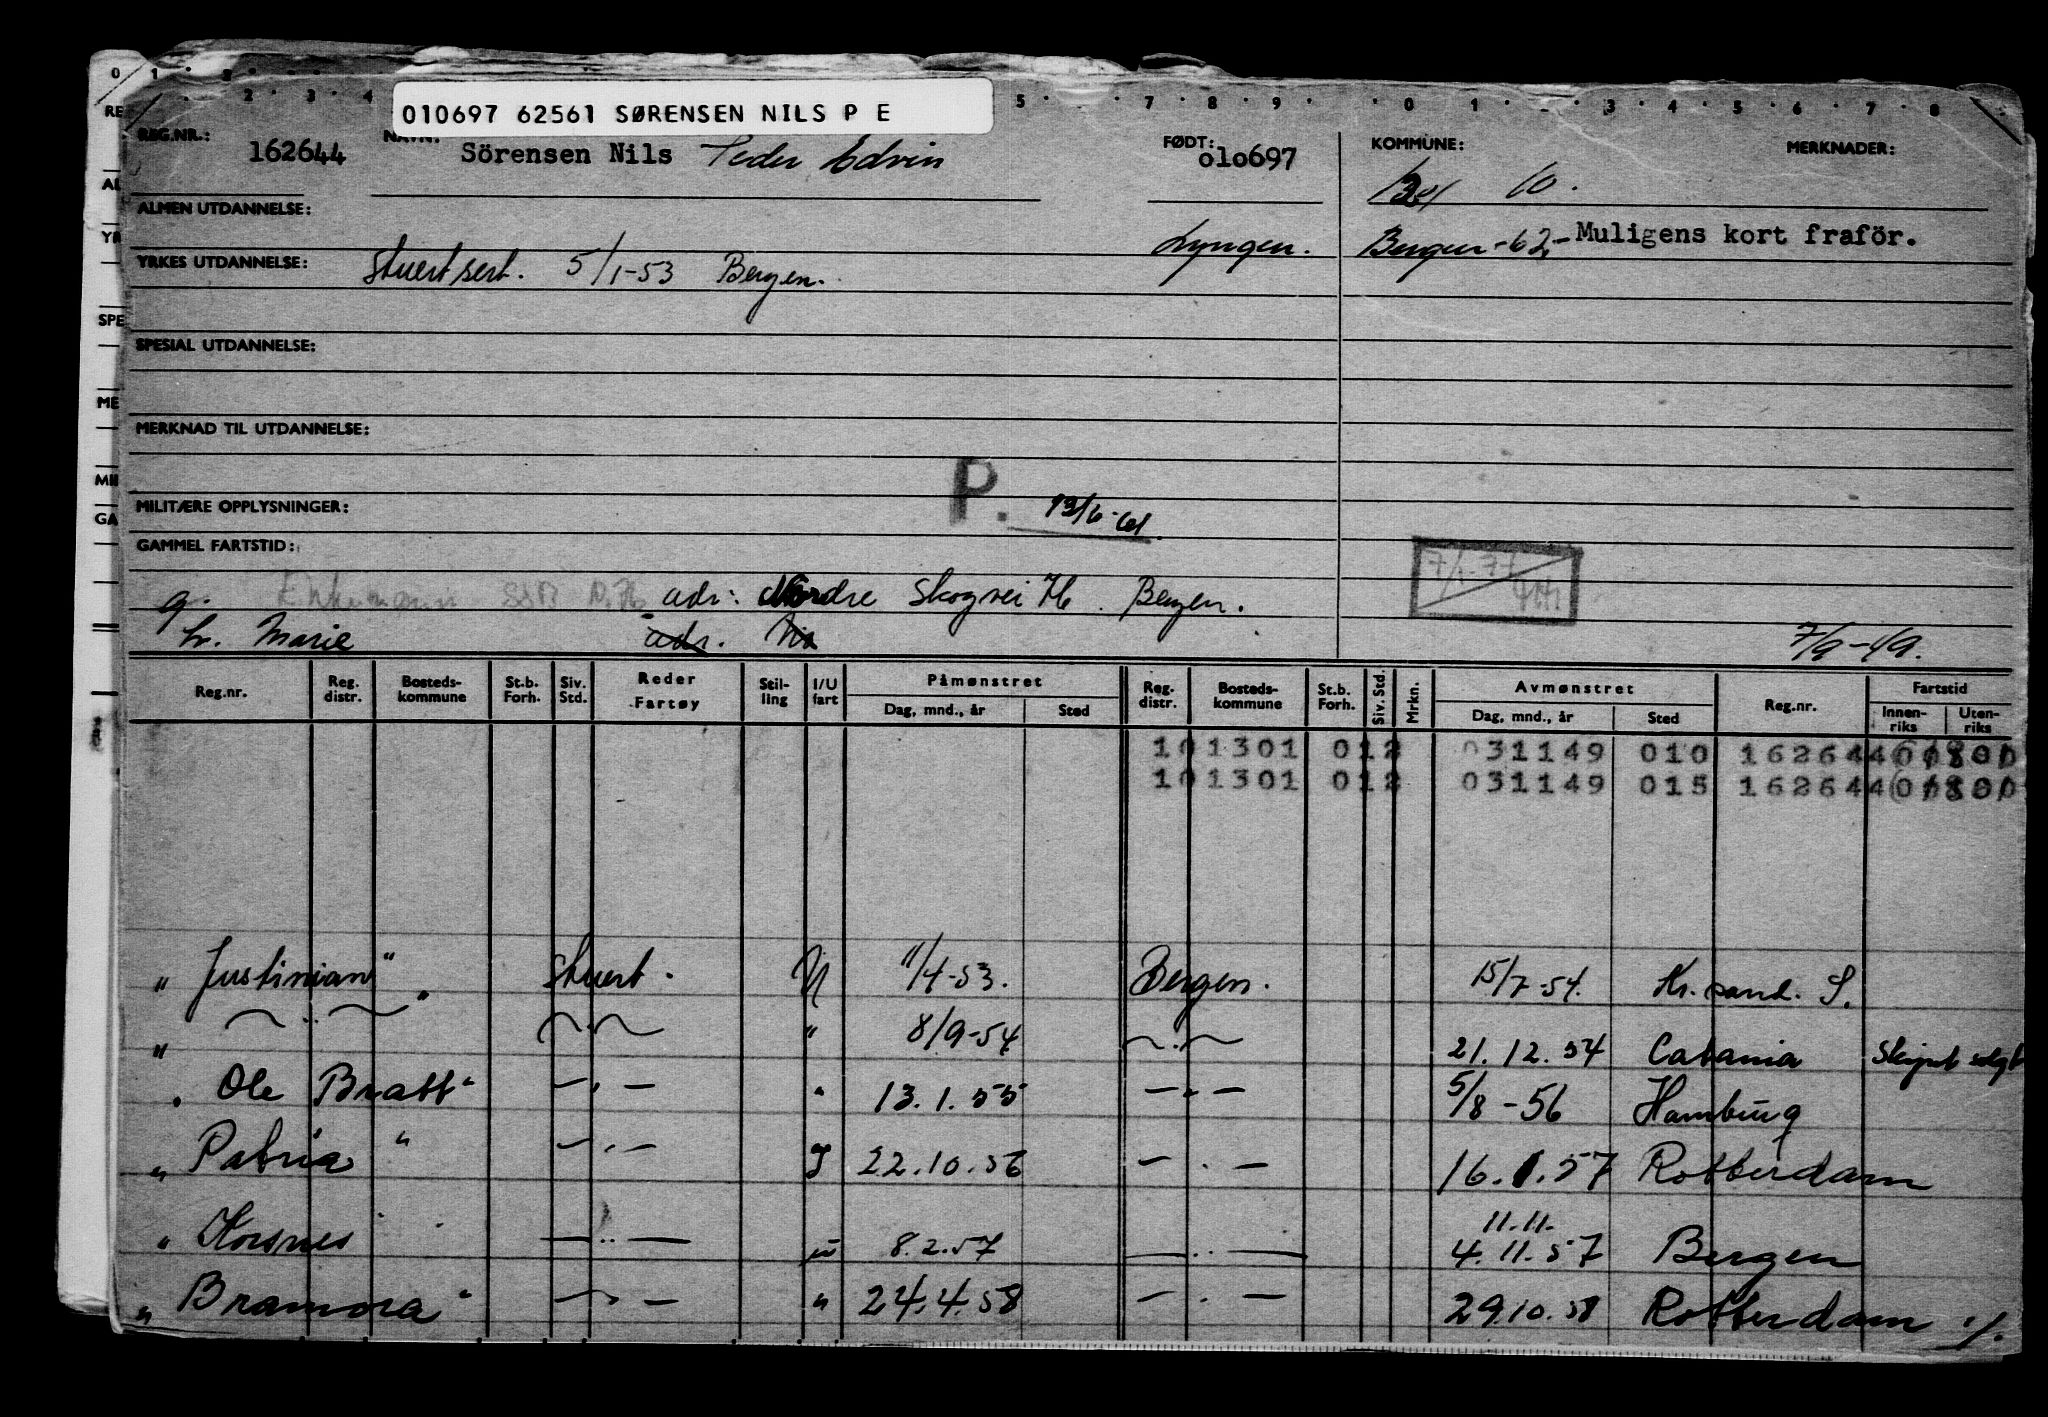 010697 62561 SØRENSEN NILS P E
REG.NR.: 162644 NAVN: Sörensen Nils Peder Edvin FØDT: 010697 KOMMUNE: MERKNADER:
10.
ALMEN UTDANNELSE: Lyngen. Bergen-62- Muligens kort fraför.
YRKES UTDANNELSE: Stuertsert. 5/1-53 Bergen.
SPESIAL UTDANNELSE:
MERKNAD TIL UTDANNELSE:
MILITÆRE OPPLYSNINGER: P. 13/6-61
GAMMEL FARTSTID:
g. adr: Nordre Skogvei 76. Bergen. 7/1-77
h. Marie adr. 7/9-49.
Reg.nr. Reg. distr. Bosteds-kommune St.b. Forh. Siv. Std. Reder Fartøy Stil-ling I/U fart Påmønstret Dag, mnd., år Sted Reg. distr. Bosteds-kommune St.b. Forh. Siv. Std. Mrkn. Avmønstret Dag, mnd., år Sted Reg.nr. Fartstid Innen-riks Uten-riks
101301 012 031149 010 162644
101301 012 031149 015 162644
" Justinian " Stuert. U 11/4-53. Bergen. 15/7-54. Kr.sand. S.
" — " — " — " — " 8/9-54 — " — 21.12.54 Catania Skipet solgt
" Ole Bratt " — " — " 13.1.55 — " — 5/8-56 Hamburg
" Patria " — " — I 22.10.56 — " — 16.1.57 Rotterdam
" Korsnes " — " — U 8.2.57 — " — 11.11. 4.11.57 Bergen
" Bramora " — " — " 24.4.58 — " — 29.10.58 Rotterdam ./.